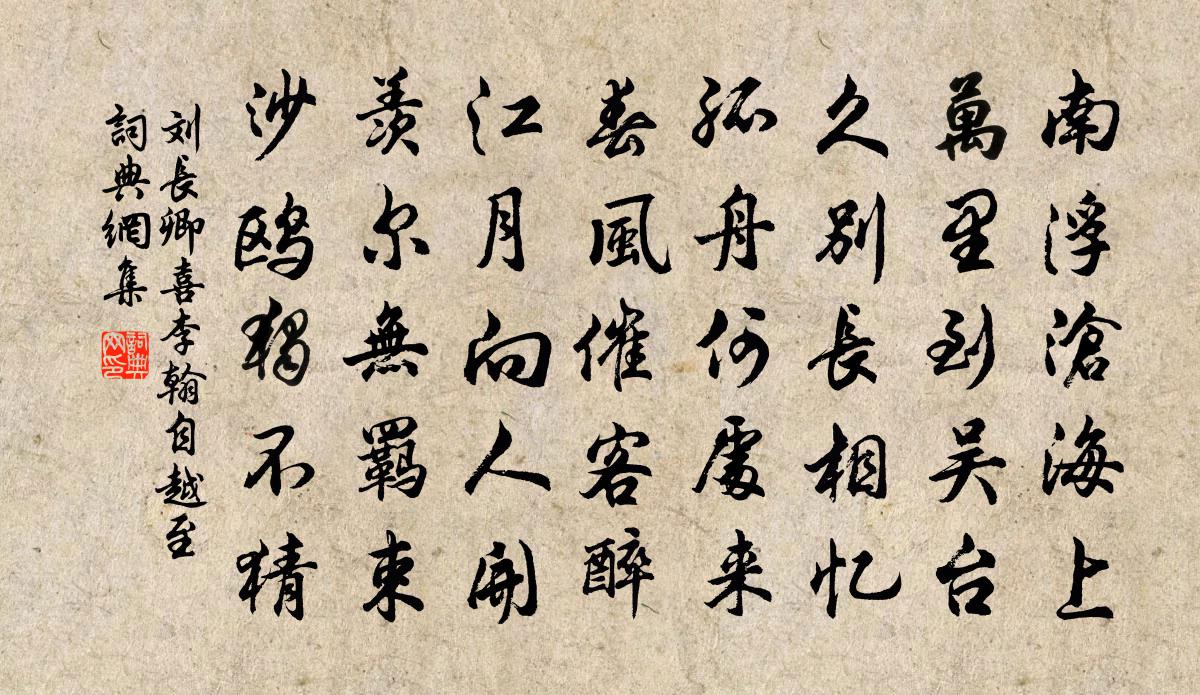 南浮滄海上
萬里到吴台
久别長相忆
孤舟何處来
春風催客醉
江月向人開
羡尔無羁束
沙鸥独不猜
刘長卿喜李翰自越至
詞典網集
詞典
网印